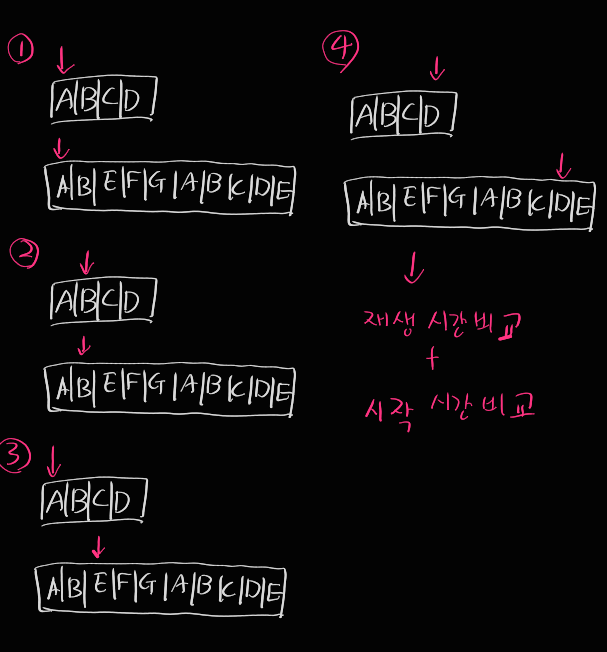 ①
A|B|C|D
A|B|E|F|G|A|B|C|D|E
②
A|B|C|D
A|B|E|F|G|A|B|C|D|E
③
A|B|C|D
A|B|E|F|G|A|B|C|D|E
④
A|B|C|D
A|B|E|F|G|A|B|C|D|E
재생 시간 비교
+
시각 시간 비교